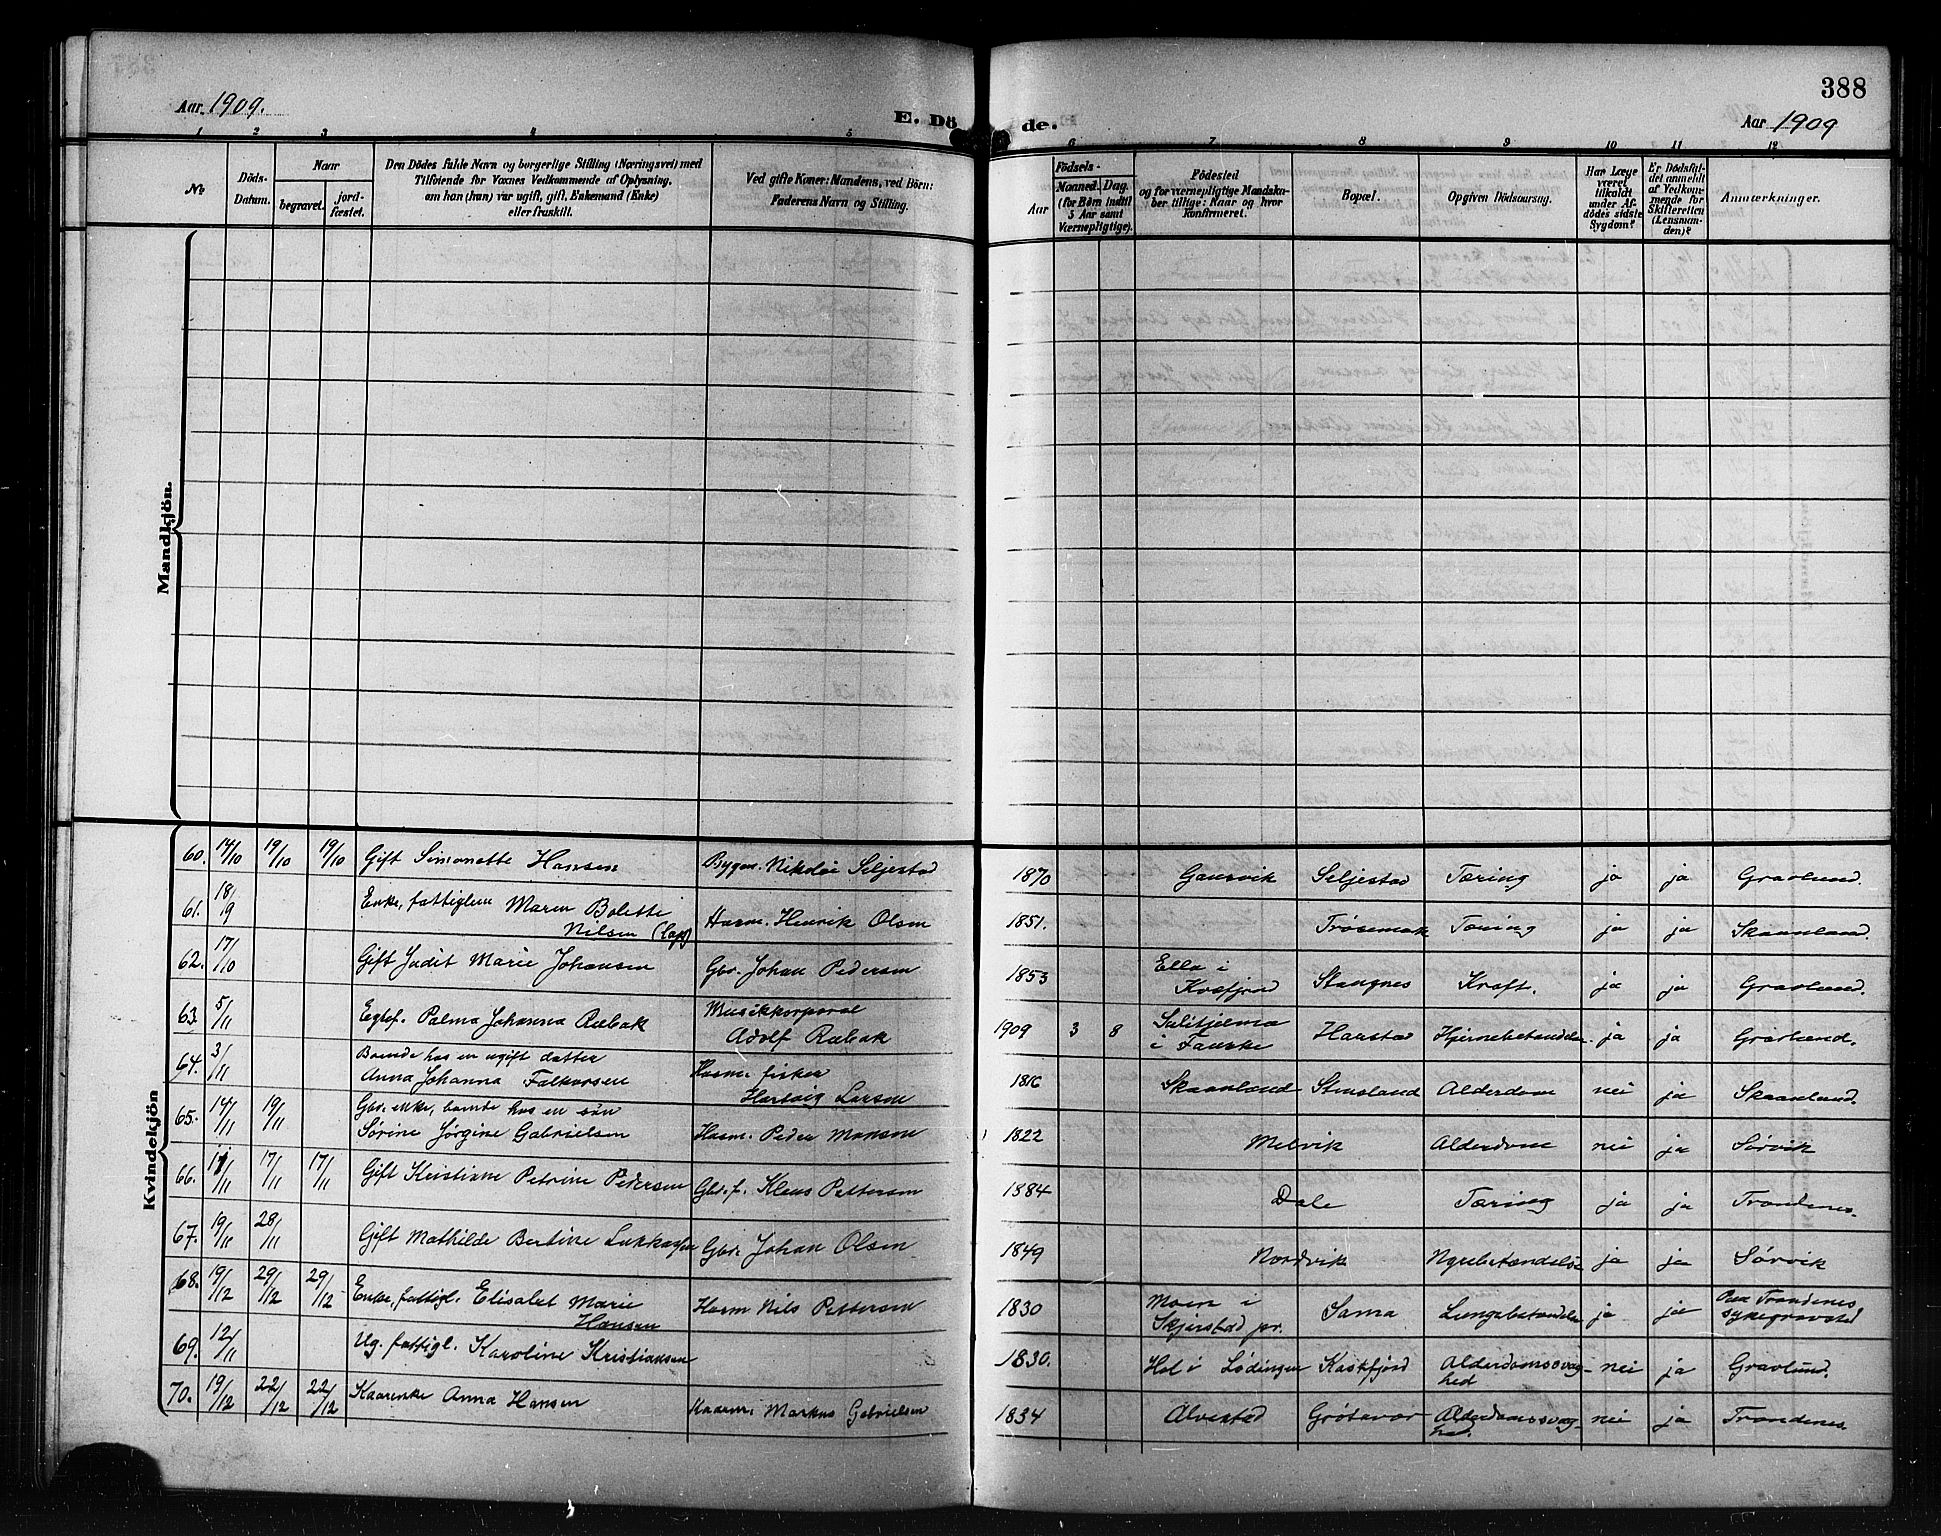 388
Aar 1909.
E. Dö de.
Aar 1909
1 2 3 4 5 6 7 8 9 10 11 12
No
Döds-
Datum.
Naar
begravet.
jord-
fæstet.
Den Dödes fulde Navn og borgerlige Stilling (Næringsvei) med
Tilföiende for Voxnes Vedkommende af Oplysning,
om han (hun) var ugift, gift, Enkemand (Enke)
eller fraskilt.
Ved gifte Koner: Mandens, ved Börn:
Faderens Navn og Stilling.
Födsels-
Aar
Maaned.
Dag.
(for Börn indtil
5 Aar samt
Værnepligtige).
Födested
og for værnepligtige Mandska-
ber tillige: Naar og hvor
konfirmeret.
Bopæl.
Opgiven Dödsaarsag.
Har Læge
været
tilkaldt
under Af-
dödes sidste
Sygdom?
Er Dödsfal-
det anmeldt
af Vedkom-
mende for
Skifteretten
(Lensman-
den)?
Anmærkninger.
Mandkjön.
Kvindekjön
60. 14/10 19/10 19/10 Gift Simonette Hansen Bygm. Nikolai Seljestad 1870 Gausvik Seljestad Tæring ja ja Gravlund.
61. 18/9 Enke, fattiglem Maren Bolette
Nilsen (lap) Husm. Henrik Olsen 1851. Trøsemark Tæring ja ja Skaanland.
62. 17/10 Gift Judit Marie Johansen Gbr. Johan Pedersen 1853 Elda i
Kvæfjord Stangnes Kræft. ja ja Gravlund.
63. 5/11 Egtef. Palma Johanna Rebak Musikkorporal
Adolf Rebak 1909 3 8 Sulitjelma
i Fauske Harstad Hjernebetændelse ja ja Gravlund.
64. 3/11 Boende hos en ugift datter
Anna Johanna Falkorsen Husm. fisker
Hartvig Larsen 1816 Skaanland Stensland Alderdom nei ja Skaanland.
65. 14/11 19/11 Gbr. enke, boende hos en søn
Sørine Jørgine Gabrielsen Husm. Peder Monsen 1822 Melvik Alderdom nei ja Sørvik
66. 11/11 17/11 17/11 Gift Kristiane Petrine Pedersen Gbr. f. Klaus Pettersen 1884 Dale Tæring ja ja Trondenes.
67. 19/11 28/11 Gift Mathilde Bertine Lukkassen Gbr. Johan Olsen 1849 Nordvik Nyrebetændelse ja ja Sørvik
68. 19/12 29/12 29/12 Enke, fattigl. Elisabet Marie
Hansen Husm Nils Pettersen 1830 Moen i
Skjerstad pr. Sama Lungebetændelse ja ja Paa Trondenes
sykegravsted
69. 12/11 Ug. fattigl. Karoline Kristiansen 1830. Hol i Lødingen Kasfjord Alderdomssvag-
hed nei ja Gravlund.
70. 19/12 22/12 22/12 Kaarenke Anna Hansen Kaarm. Markus Gabrielsen 1834 Alvestad Grøtavær Alderdomssvag-
hed. nei ja Trondenes